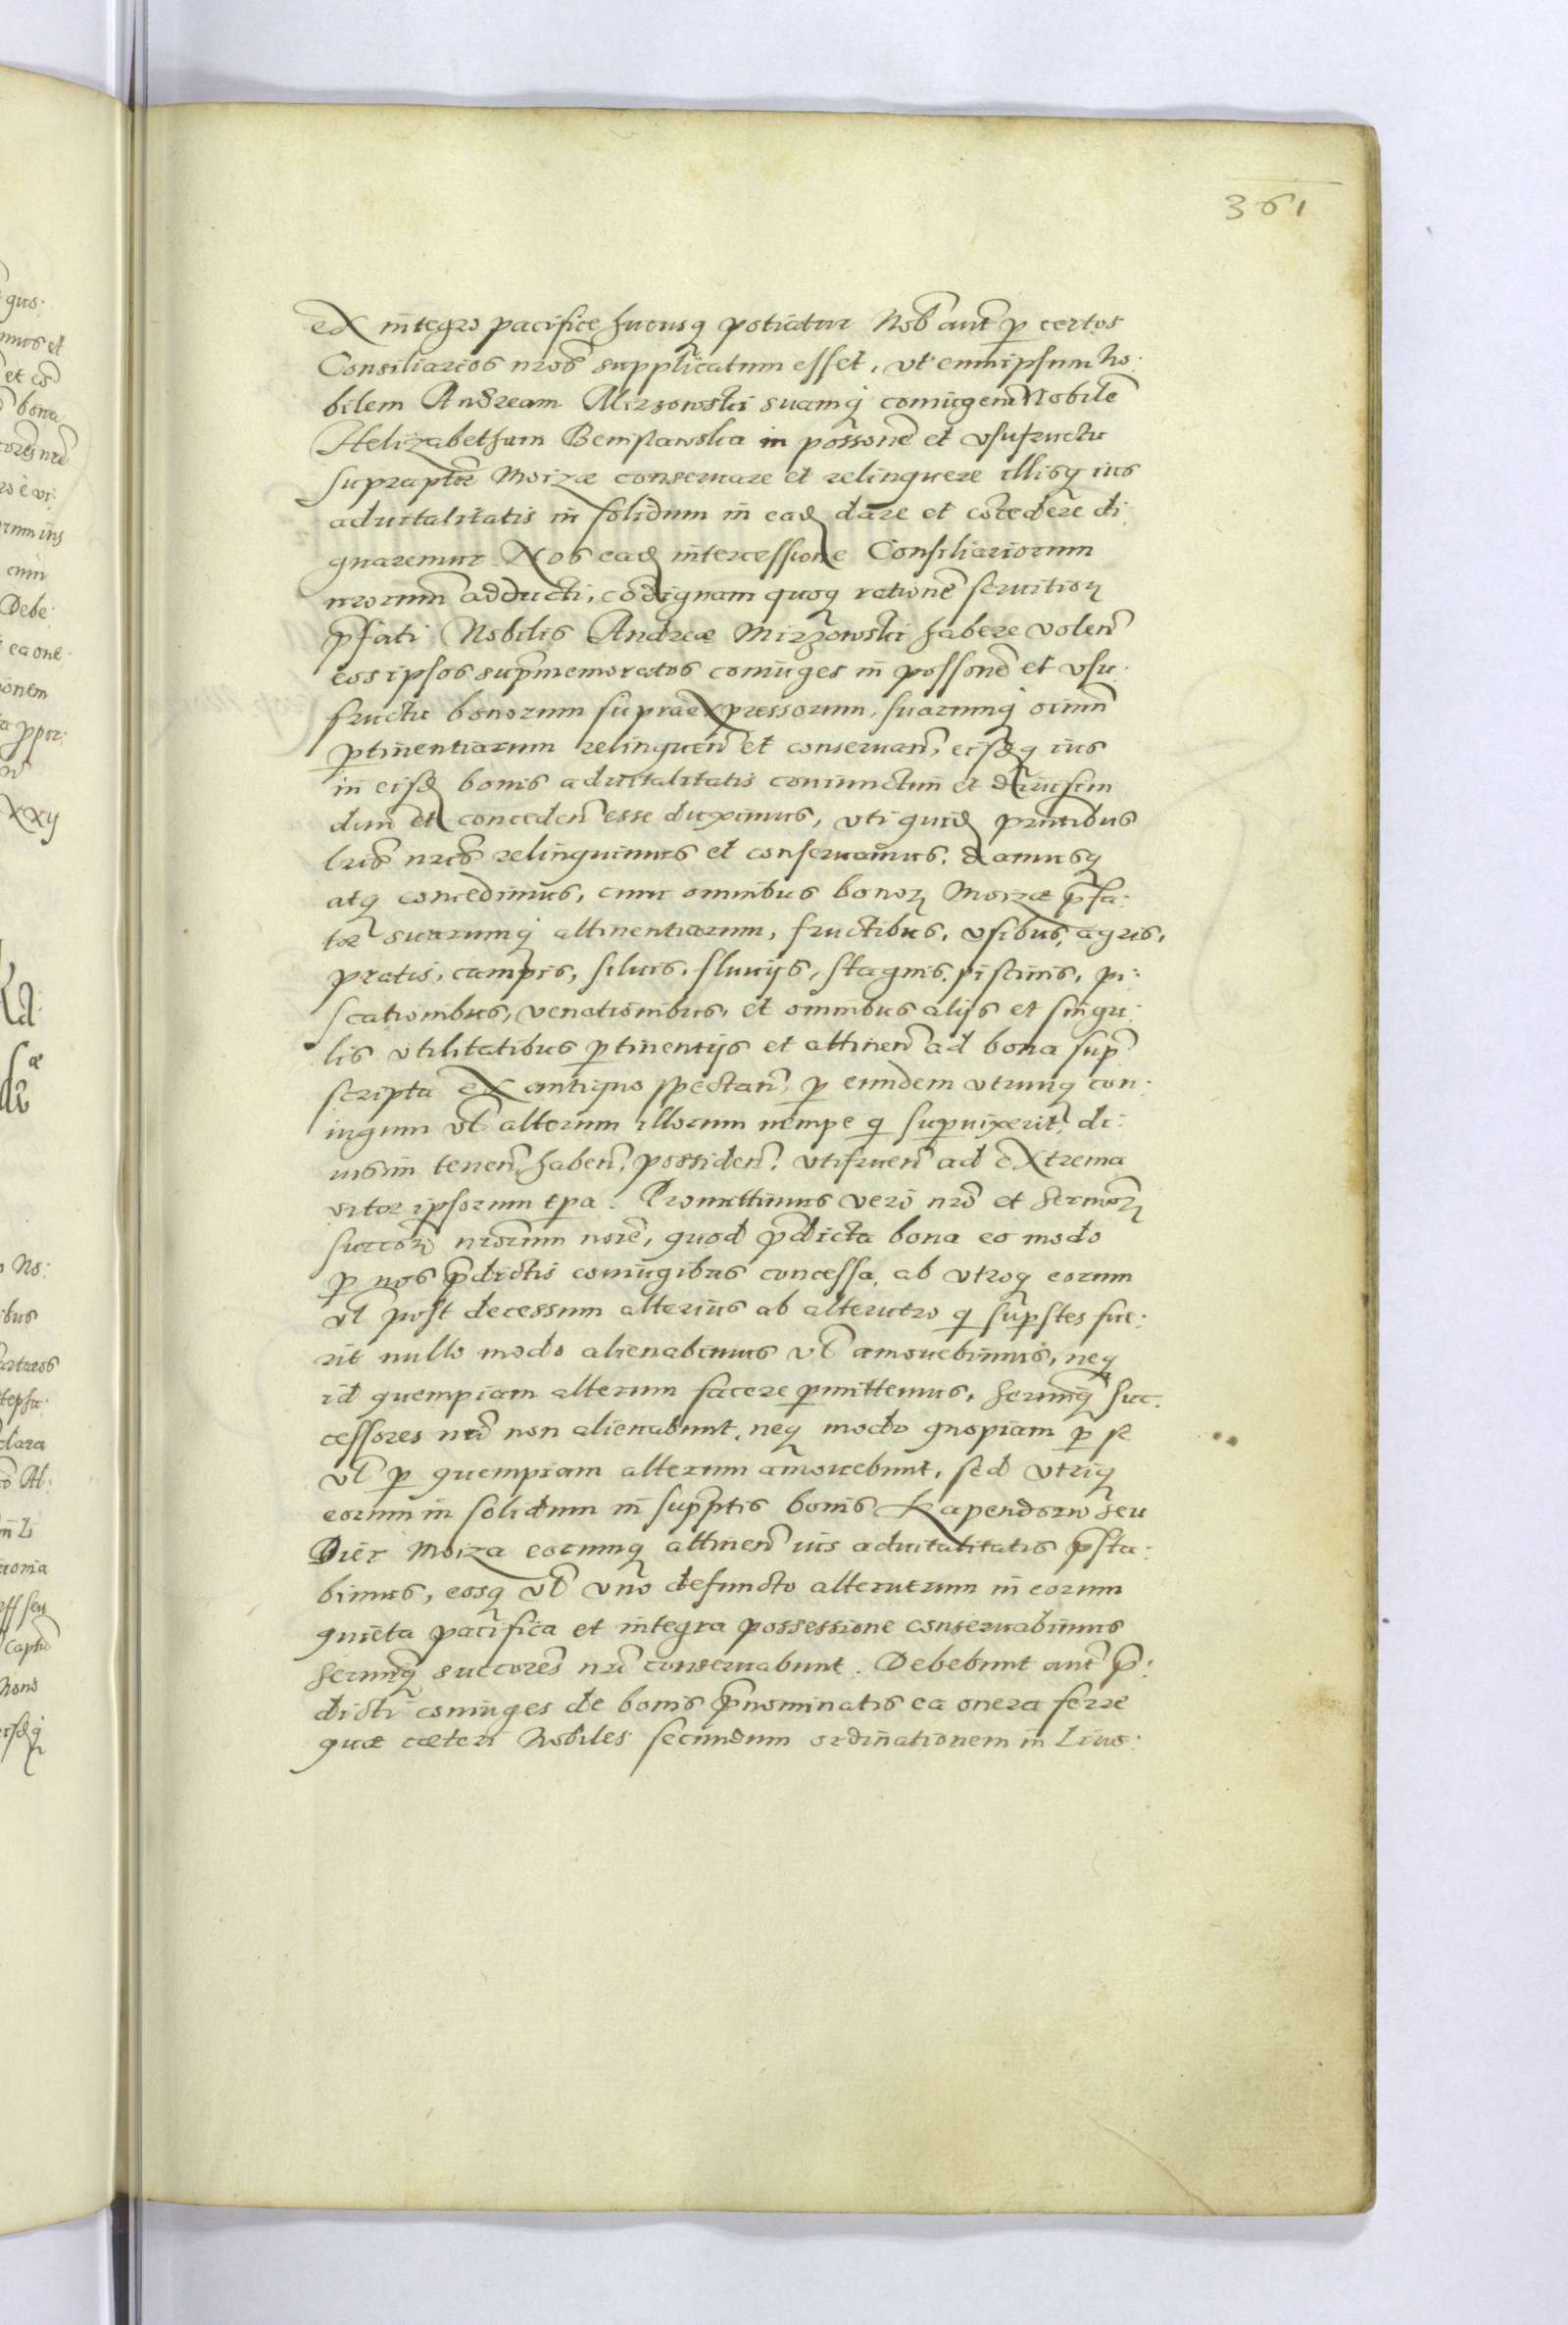 361
ex integro pacifice hucusq potiatur Nob aut p certos
Consiliarios nros supplicatum esset, vt eumipsum No:
bilem Andream Mirzowski suamq coniugem Nobile
Helizabetham Benislawska in possone et vsufructu
supraptæ Moizæ conseruare et relinquere illisq ius
aduitalitatis in solidum in ead dare et cocedere di
gnaremur Nos ead intercessione Consiliariorum
nrorum adducti, codignam quoq ratione seruitior
pfati Nobilis Andreæ Mirzowski habere volen
eos ipsos supmemoratos coniuges in possone et vsu
fructu bonorum supraexpressorum, suarumq oium
ptinentiarum relinquen et conseruan, eisdq ius
in eisd bonis aduitalitatis coniunctim et diuisim
dum et conceden esse duximus, vti quid pntibus
lris nris relinquimus et conseruamus. damusq
atq concedimus, cum omnibus bonor Moizæ pfa:
tæ suarumq attinentiarum, fructibus, vsibus, agris,
pratis, campis, siluis, fluuijs, stagnis, piscinis, pi:
scationibus, venationibus, et omnibus alijs et singu:
lis vtilitatibus ptinentijs et attinen ad bona sup
scripta ex antiquo spectan, p eundem vtrunq con:
iugum vl alterum illorum nempe q supuixerit, di:
uisim tenen, haben, possiden, vtifruen ad extrema
vitæ ipsorum tpa. Promittimus vero nro et Sermor
succor nrorum noie, quod pdicta bona eo modo
p nos pdictis coniugibus concessa, ab vtroq eorum
vl post decessum alterius ab alterutro q supstes fue:
rit nullo modo alienabimus vl amouebimus, neq
id quempiam alterum facere pmittemus, Sermiq suc:
cessores nri non alienabunt, neq modo qnopiam p se
vl p quempiam alterum amouebunt, sed vtriq
eorum in solidum in supptis bonis Kapendorw seu
Dier Moiza eorumq attinen ius aduitalitatis psta:
bimus, eosq vl vno defuncto alterutrum in eorum
quieta pacifica et integra possessione conseruabimus
Sermiq succores nri conseruabunt. Debebunt aut p:
dicti coniuges de bonis pnominatis ea onera ferre
quæ cæteri Nobiles secundum ordinationem in Liuo: